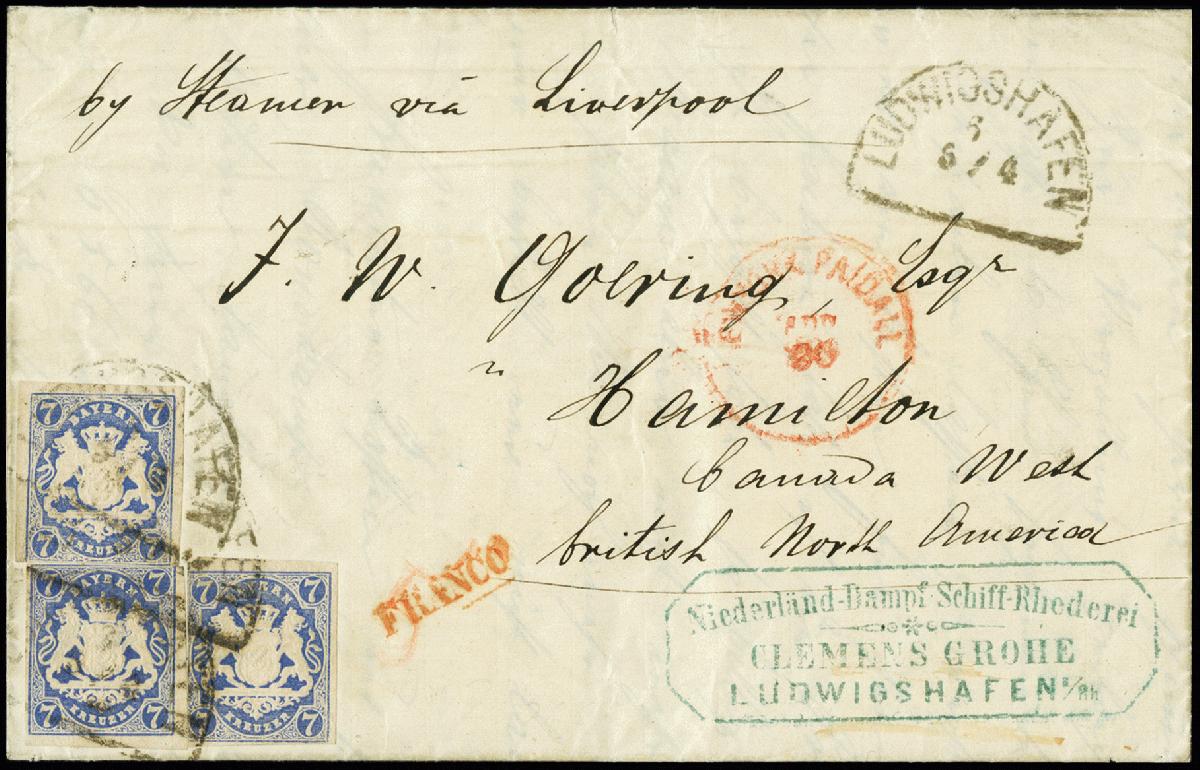 by Steamer via Liverpool
LUDWIGSHAFEN
6/4
J. W. Goering, Esqr
PAID ALL
APR
Hamilton
Canada West
british North America
FRANCO
7 BAYERN 7
7 KREUZER 7
7 BAYERN 7
7 KREUZER 7
7 BAYERN 7
7 KREUZER 7
Niederländ-Dampf-Schiff-Rhederei
CLEMENS GROHE
LUDWIGSHAFEN a/RH